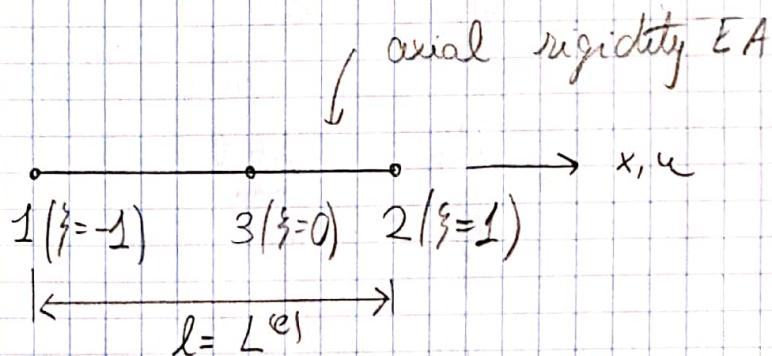 axial rigidity EA
x, u
1(ξ=-1) 3(ξ=0) 2(ξ=1)
l = L^(e)